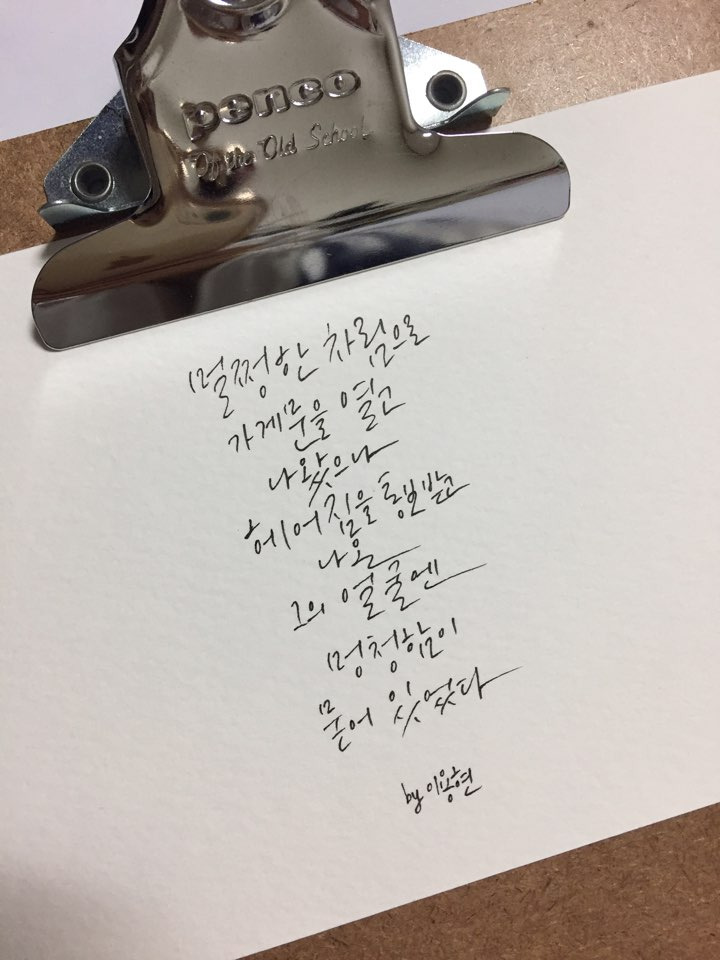 penco
Of the Old School
멀쩡한 차림으로
가게문을 열고
나왔으나
헤어짐을 통보받고
나온
그의 얼굴엔
멍청함이
묻어 있었다
by 이용현